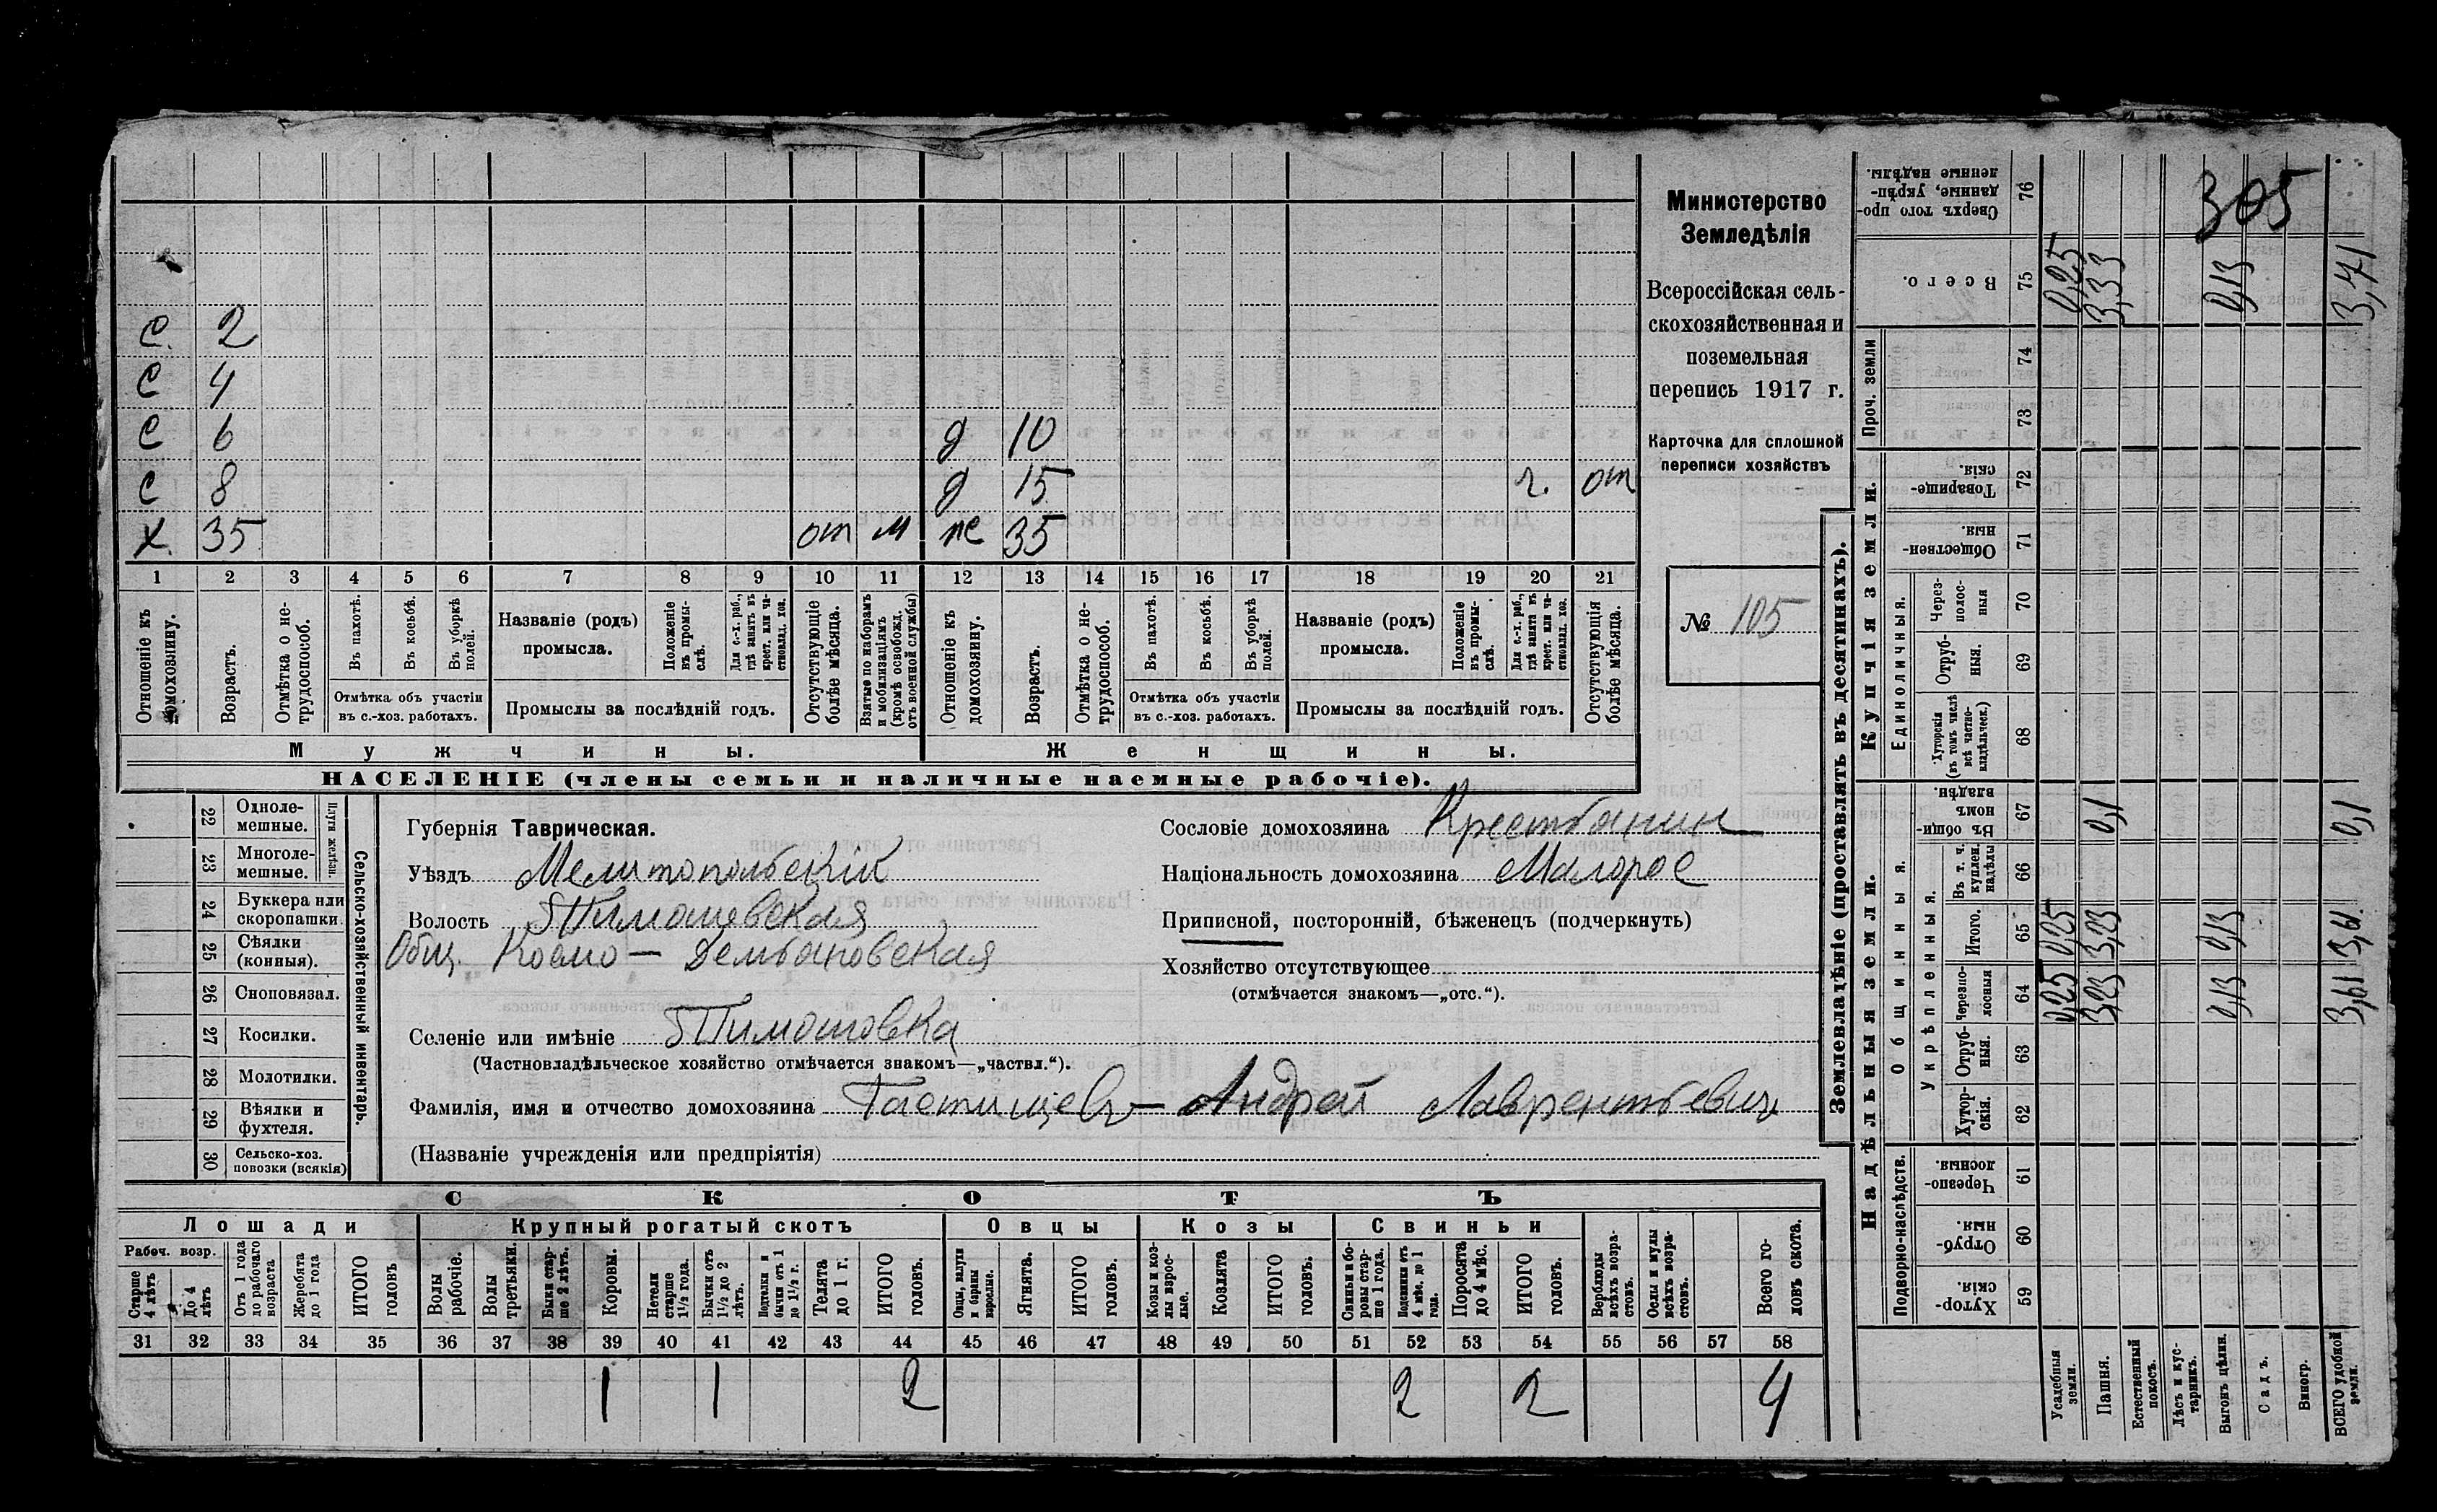 С. 2
С 4
С 6 д 10
С 8 д 15 г. от
Х. 35 от м же 35
1 2 3 4 5 6 7 8 9 10 11 12 13 14 15 16 17 18 19 20 21
Отношеніе къ домохозяину.
Возрастъ.
Отмѣтка о не-трудоспособ.
Въ пахотѣ.
Въ косьбѣ.
Въ уборкѣ полей.
Отмѣтка объ участіи
въ с.-хоз. работахъ.
Названіе (родъ)
промысла.
Положеніе въ промы-слѣ.
Для с.-х. раб., гдѣ занятъ въ крест. или ча-стновлад. хоз.
Промыслы за послѣдній годъ.
Отсутствующіе болѣе мѣсяца.
Взятые по наборамъ и мобилизаціямъ (кромѣ освобожд. отъ военной службы)
Отношеніе къ домохозяину.
Возрастъ.
Отмѣтка о не-трудоспособ.
Въ пахотѣ.
Въ косьбѣ.
Въ уборкѣ полей.
Отмѣтка объ участіи
въ с.-хоз. работахъ.
Названіе (родъ)
промысла.
Положеніе въ промы-слѣ.
Для с.-х. раб., гдѣ занята въ крест. или ча-стновлад. хоз.
Промыслы за послѣдній годъ.
Отсутствующія болѣе мѣсяца.
Мужчины. Женщины.
НАСЕЛЕНІЕ (члены семьи и наличные наемные рабочіе).
Министерство
Земледѣлія
Всероссійская сель-
скохозяйственная и
поземельная
перепись 1917 г.
Карточка для сплошной
переписи хозяйствъ
№ 105
Сельско-хозяйственный инвентарь.
Плуги желѣзн.
22 Одноле-мешные.
23 Многоле-мешные.
24 Буккера или скоропашки
25 Сѣялки (конныя).
26 Сноповязал.
27 Косилки.
28 Молотилки.
29 Вѣялки и фухтеля.
30 Сельско-хоз. повозки (всякія)
Губернія Таврическая.
Уѣздъ Мелитопольскій
Волость Тимошевская
Общ. Космо-Демьановская
Селеніе или имѣніе Тимошовка
(Частновладѣльческое хозяйство отмѣчается знакомъ—„частвл.“).
Фамилія, имя и отчество домохозяина Тастищевъ Андрей Лаврентьевич
(Названіе учрежденія или предпріятія)
Сословіе домохозяина Крестьанин
Національность домохозяина Малорос
Приписной, посторонній, бѣженецъ (подчеркнуть)
Хозяйство отсутствующее
(отмѣчается знакомъ—„отс.“).
СКОТЪ
Лошади Крупный рогатый скотъ Овцы Козы Свиньи
Рабоч. возр.
Старше 4 лѣтъ
До 4 лѣтъ
Отъ 1 года до рабочаго возраста
Жеребята до 1 года
ИТОГО головъ
Волы рабочіе.
Волы третьяки.
Быки стар-ше 2 лѣтъ.
Коровы.
Нетели старше 1½ года.
Бычки отъ 1½ до 2 лѣтъ.
Подтелки и бычки отъ 1 до 1½ г.
Телята до 1 г.
ИТОГО головъ.
Овцы, валухи и бараны взрослые.
Ягнята.
ИТОГО головъ.
Козы и коз-лы взрос-лые.
Козлята
ИТОГО головъ.
Свиньи и бо-ровы стар-ше 1 года.
Подсвинки отъ 4 мѣс. до 1 года.
Поросята до 4 мѣс.
ИТОГО головъ.
Верблюды всѣхъ возра-стовъ.
Ослы и мулы всѣхъ возра-стовъ.
Всего го-ловъ скота.
31 32 33 34 35 36 37 38 39 40 41 42 43 44 45 46 47 48 49 50 51 52 53 54 55 56 57 58
1 1 2 2 2 4
Землевладѣніе (проставлять въ десятинахъ).
Надѣльныя земли. Купчія земли. Проч. земли
Подворно-наслѣдств.
Общинныя.
Укрѣпленныя.
Единоличныя.
Сверхъ того про-данные, укрѣп-ленные надѣлы. 76 305
Всего. 75 0,25 3,33 0,13 3,71
74
73
Товарище-скія. 72
Обществен-ныя. 71
Черезполос-ныя 70
Отруб-ныя. 69
Хуторскія (въ томъ числѣ всѣ частно-владѣльческ.) 68
Въ общи-номъ владѣн. 67 0,1 0,1
Въ т. ч. куплен. надѣлы 66
Итого. 65 0,25 3,23 0,13 3,61.
Черезпо-лосныя 64 0,25 3,23 0,13 3,61
Отруб-ныя. 63
Хутор-скія. 62
Черезпо-лосныя. 61
Отруб-ныя. 60
Хутор-скія 59
Усадебныя земли.
Пашня.
Естественный покосъ.
Лѣсъ и кус-тарникъ.
Выгонъ цѣлин.
Садъ.
Виногр.
ВСЕГО удобной земли.